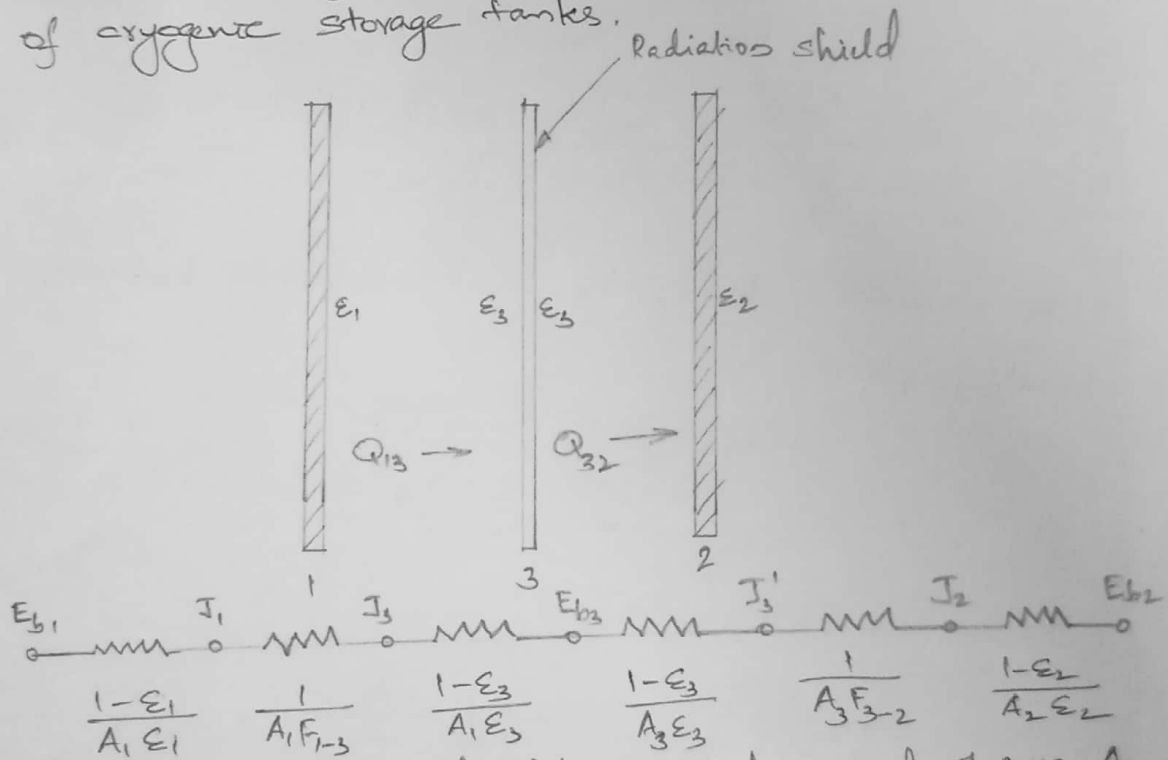 of cryogenic storage tanks.
Radiation shield
ε₁ ε₃ ε₃ ε₂
Q₁₃ → Q₃₂ →
1 3 2
E_b₁ J₁ J₃ E_b₃ J₃' J₂ E_b₂
(1-ε₁)/(A₁ ε₁) 1/(A₁F₁₋₃) (1-ε₃)/(A₁ε₃) (1-ε₃)/(A₃ε₃) 1/(A₃F₃₋₂) (1-ε₂)/(A₂ε₂)